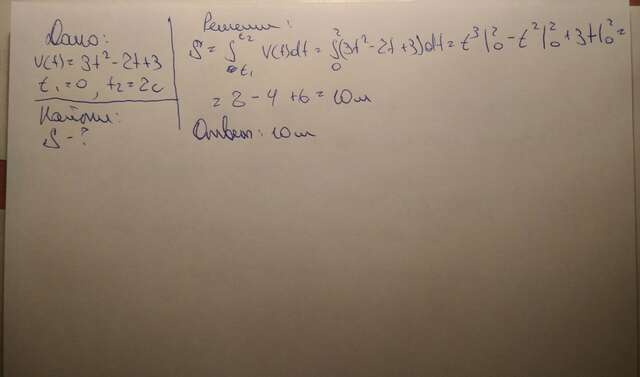 Дано:
v(t) = 3t² - 2t + 3
t₁ = 0, t₂ = 2с
Найти:
S - ?
Решение:
S = ∫ₜ₁ᵗ² v(t)dt = ∫₀²(3t² - 2t + 3)dt = t³|₀² - t²|₀² + 3t|₀² =
= 8 - 4 + 6 = 10 м
Ответ: 10 м